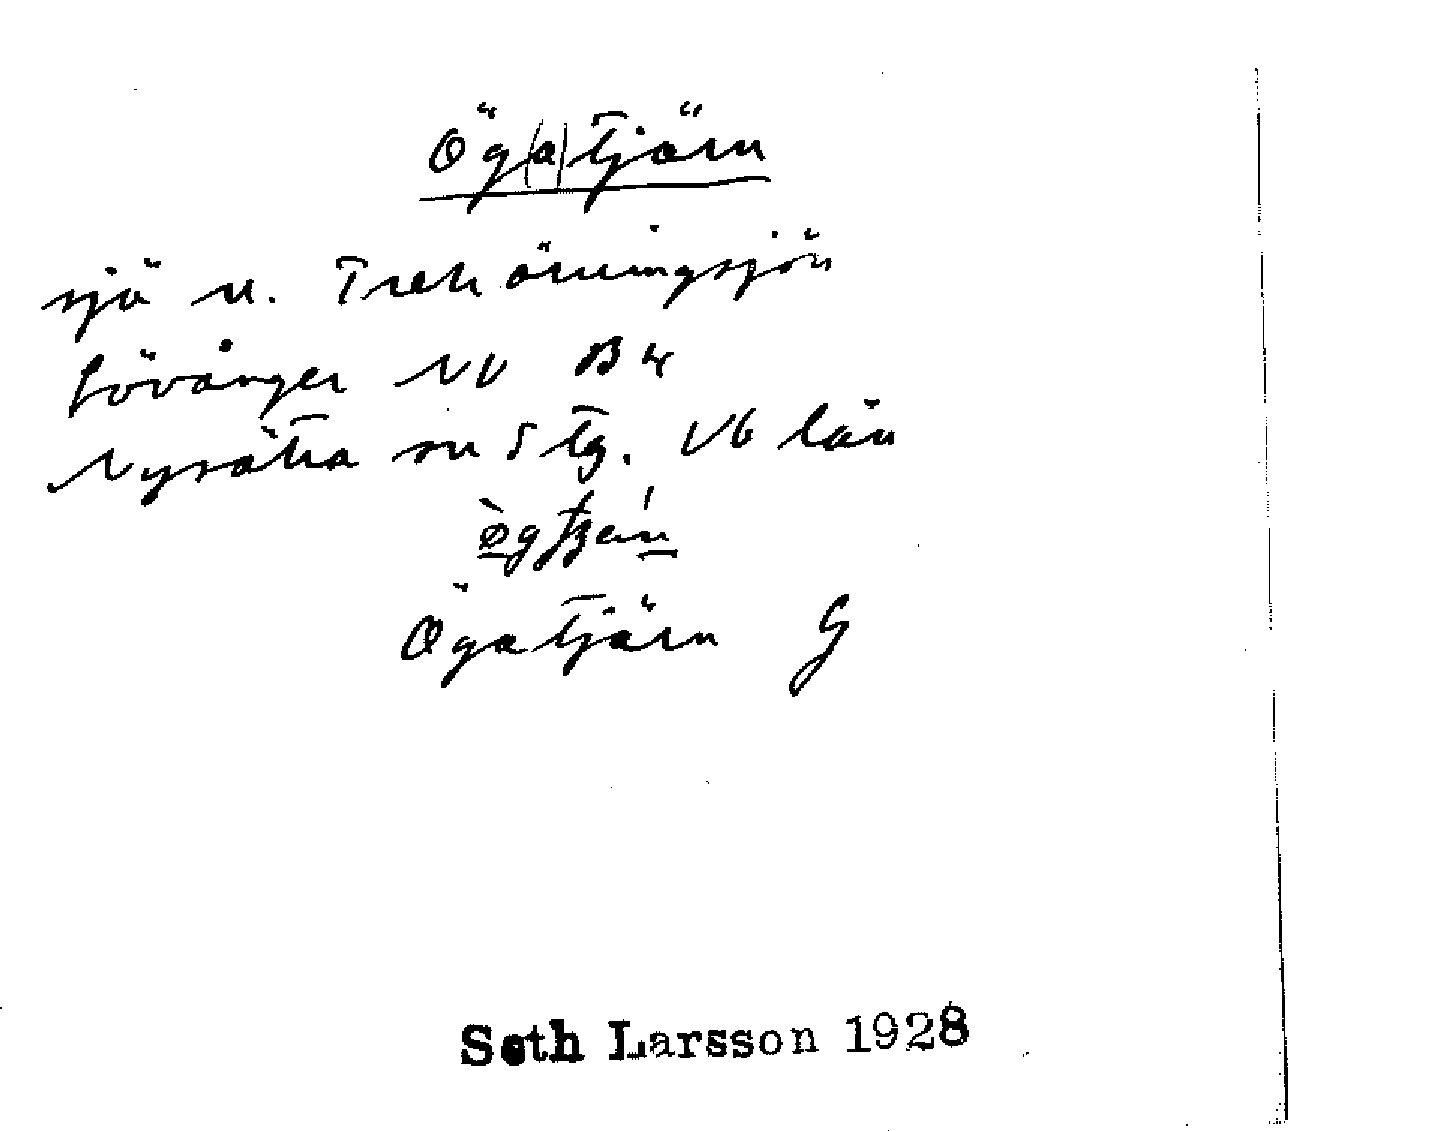 Ög(a)tjärn
sjö n. Trehörningsjön
Lövånger NV B4
Nysätra sn Stg. Vb län
Ögatjärn G
Seth Larsson 1928